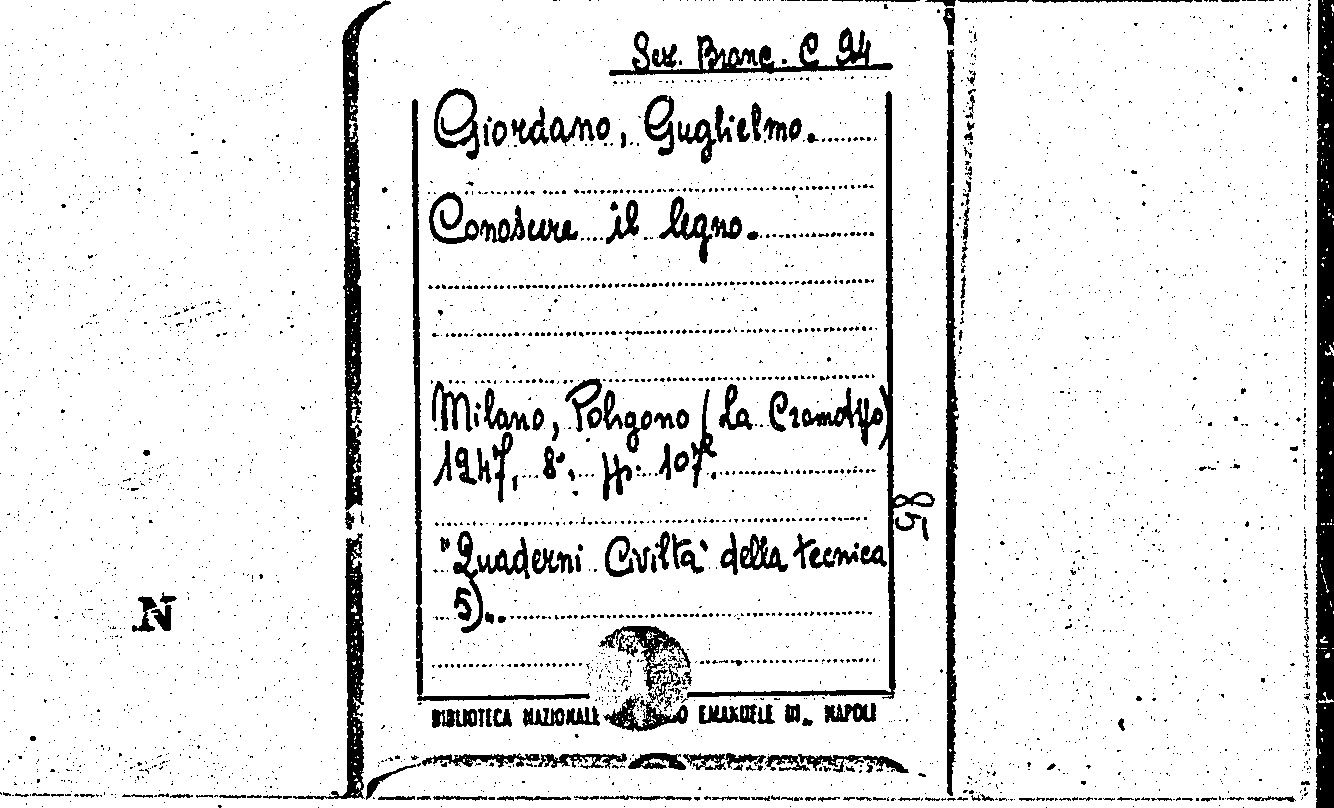 Sez. Branc. C 94
Giordano, Guglielmo.
Conoscere il legno.
Milano, Poligono (La Cromotipo)
1947, 8°. pp. 107
"Quaderni Civiltà della tecnica
5)..
58
N
BIBLIOTECA NAZIONALE EMANUELE III. NAPOLI